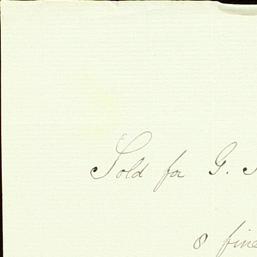 Sold for G.
8 fine